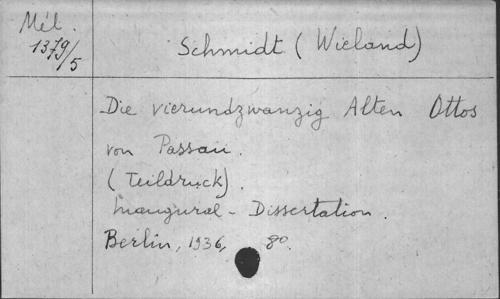 Mél.
1379/5
Schmidt (Wieland)
Die vierundzwanzig Alten Ottos
von Passau.
(Teildruck).
Inaugural-Dissertation.
Berlin, 1936, 8º.